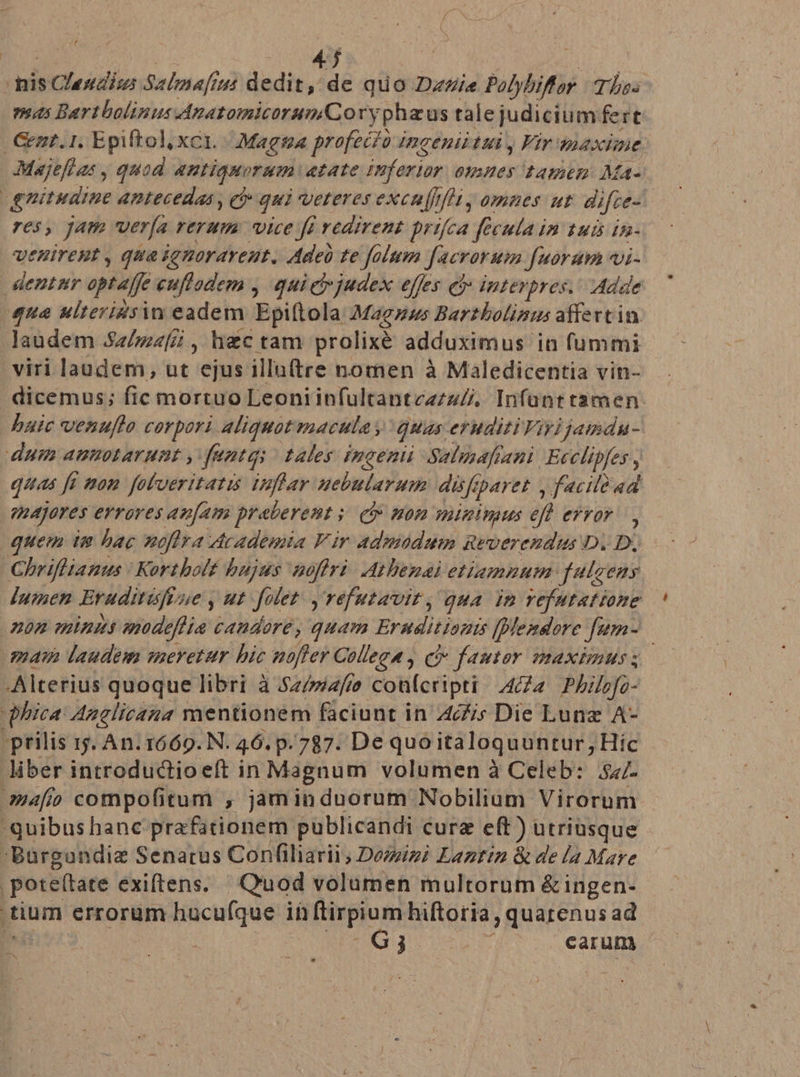 45
nis Claudius Salmaſius dedit, de quo Daniæ Polyhiſtor Tho-
mas Bartholinus Anatomicorum Coryphæus tale judicium fert
Cent. I. Epiſtol. XCI. Magna profectò ingenii tui, Vir maxime
Majeſtas, quod antiquorum ætate inferior omnes tamen Ma-
gnitudine antecedas, & qui veteres excuſſiſti, omnes ut diſce-
res, jam verſa rerum vice ſi redirent priſca ſecula in tuis in-
venirent, quæ ignorarent. Adeò te ſolum ſacrorum ſuorum vi-
dentur optaſſe cuſtodem, qui & judex eſſes & interpres. Adde
quæ ulteriùs in eadem Epiſtola Magnus Bartholinus affert in
laudem Salmaſii, hæc tam prolixè adduximus in ſummi
viri laudem, ut ejus illuſtre nomen à Maledicentia vin-
dicemus; ſic mortuo Leoni inſultant catuli. Inſunt tamen
huic venuſto corpori aliquot maculæ, quas eruditi Viri jamdu-
dum annotarunt, ſuntq; tales ingenii Salmaſiani Ecclipſes,
quas ſi non ſolveritatis inſtar nebularum disſiparet, facilè ad
majores errores anſam præberent; & non minimus eſt error,
quem in hac noſtra Academia Vir admodum Reverendus D. D.
Chriſtianus Kortholt hujus noſtri Athenæi etiamnum fulgens
lumen Eruditisſime, ut ſolet, refutavit, qua in refutatione
non minùs modeſtiæ candore, quam Eruditionis ſplendore ſum-
mam laudem meretur hic noſter Collega, & fautor maximus;
Alterius quoque libri à Salmaſio conſcripti Acta Philoſo-
phica Anglicana mentionem faciunt in Actis Die Lunæ A-
prilis 15. An. 1669. N. 46. p. 787. De quo ita loquuntur, Hic
liber introductio eſt in Magnum volumen à Celeb: Sal-
maſio compoſitum, jam in duorum Nobilium Virorum
quibus hanc præfationem publicandi curæ eſt) utriusque
Burgundiæ Senatus Conſiliarii, Domini Lantin & de la Mare
poteſtate exiſtens. Quod volumen multorum & ingen-
tium errorum hucuſque in ſtirpium hiſtoria, quatenus ad
G 3 earum